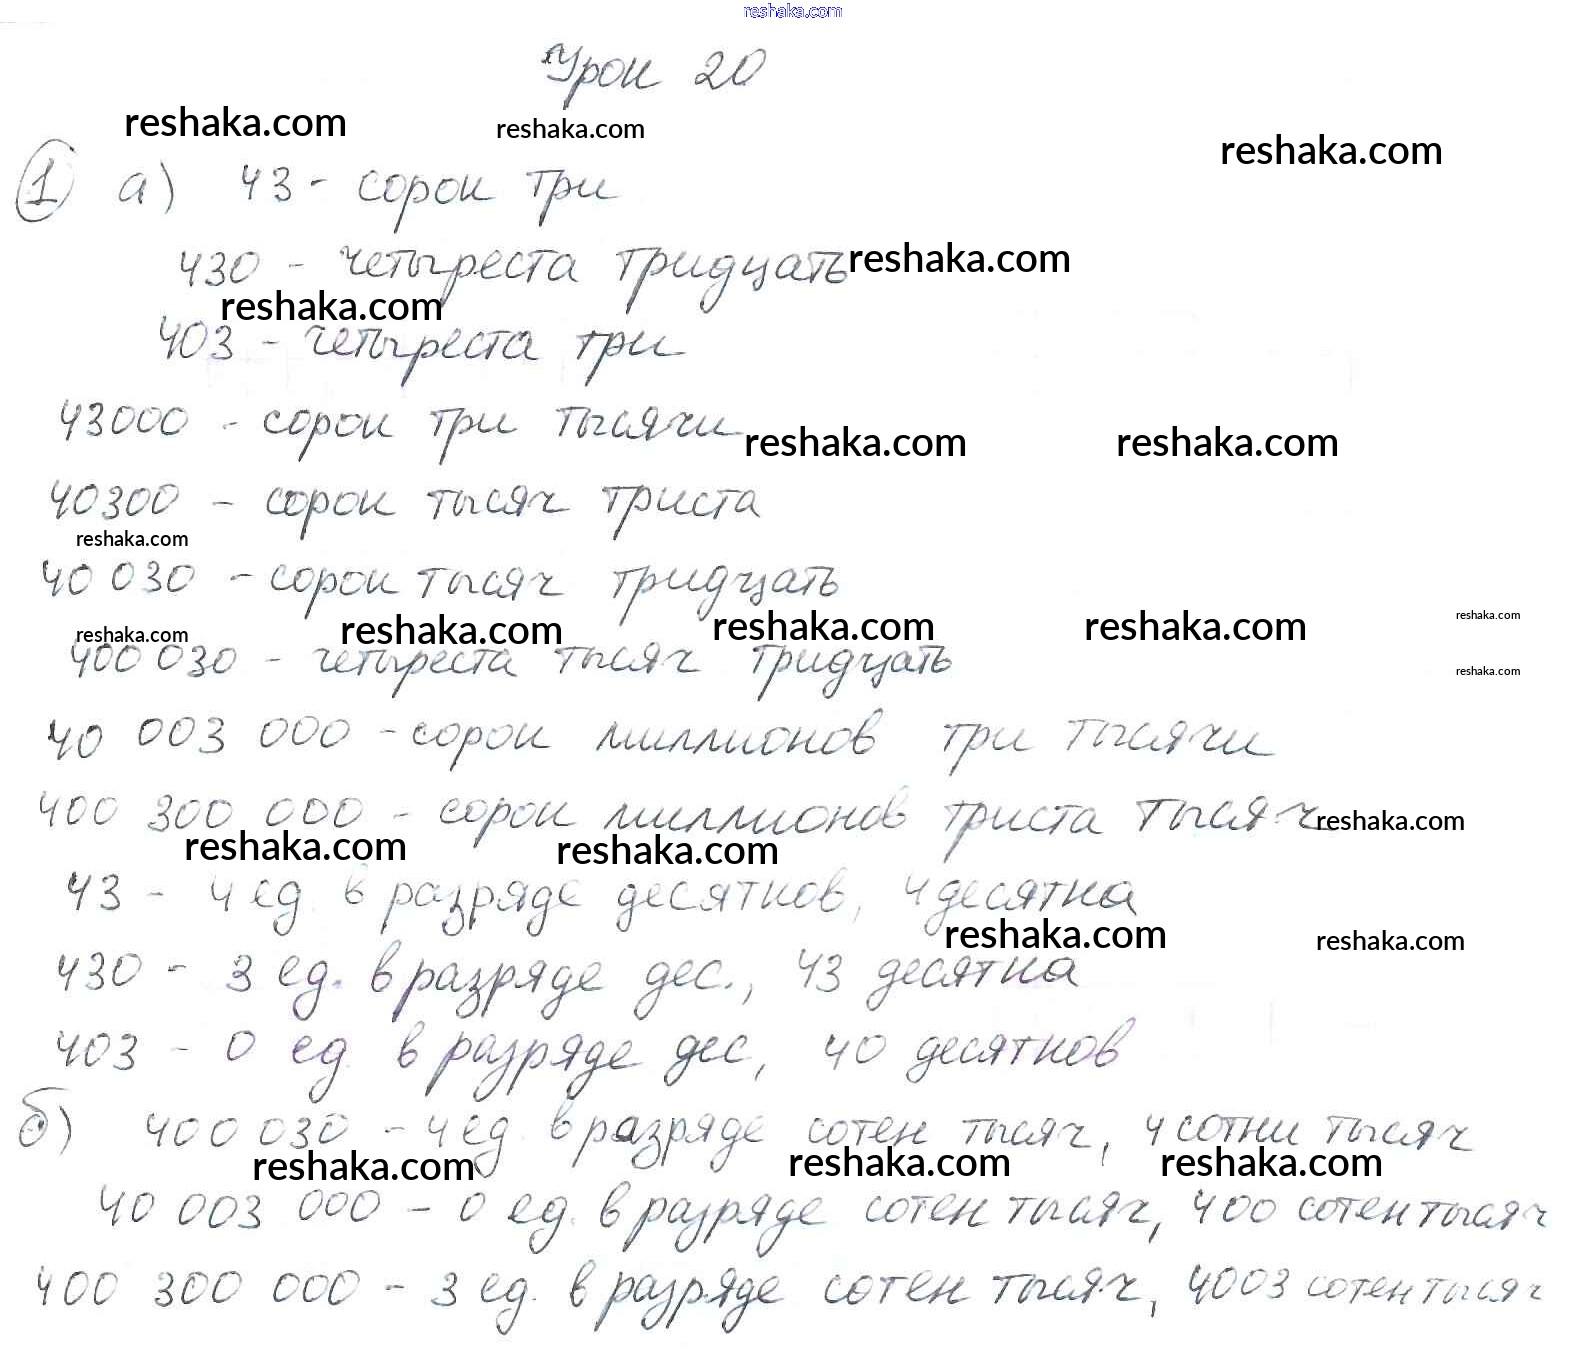 reshaka.com
Урок 20
reshaka.com reshaka.com reshaka.com
1 а) 43 - сорок три
430 - четыреста тридцать reshaka.com
reshaka.com
403 - четыреста три
43000 - сорок три тысячи reshaka.com reshaka.com
40300 - сорок тысяч триста
reshaka.com
40 030 - сорок тысяч тридцать
reshaka.com reshaka.com reshaka.com reshaka.com reshaka.com
400 030 - четыреста тысяч тридцать reshaka.com
40 003 000 - сорок миллионов три тысячи
400 300 000 - сорок миллионов триста тысяч reshaka.com
reshaka.com reshaka.com
43 - 4 ед. в разряде десятков, 4 десятка
reshaka.com reshaka.com
430 - 3 ед. в разряде дес., 43 десятка
403 - 0 ед. в разряде дес, 40 десятков
б) 400 030 - 4 ед. в разряде сотен тысяч, 4 сотни тысяч
reshaka.com reshaka.com reshaka.com
40 003 000 - 0 ед. в разряде сотен тысяч, 400 сотен тысяч
400 300 000 - 3 ед. в разряде сотен тысяч, 4003 сотен тысяч